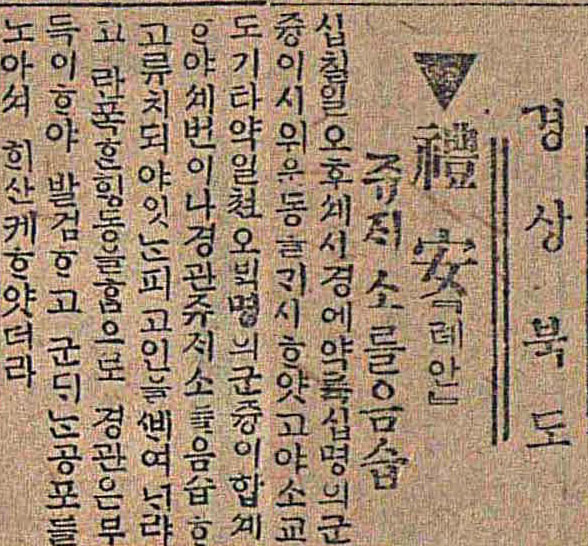 경상북도
禮安『례안』
쥬지소를음습
십칠일오후세시경에약륙십명의군
즁이시위운동을ᄀᆡ시ᄒᆞ얏고야소교
도기타약일쳔오ᄇᆡᆨ명의군즁이합계
ᄒᆞ야세번이나경관쥬지소를음습ᄒᆞ
고류치되야잇ᄂᆞᆫ피고인을ᄲᆡ여너랴
고 란폭ᄒᆞᆫᄒᆡᆼ동을ᄒᆞᆷ으로 경관은무
득이ᄒᆞ야 발검ᄒᆞ고 군ᄃᆡᄂᆞᆫ공포를
노아셔 ᄒᆡ산케ᄒᆞ얏더라